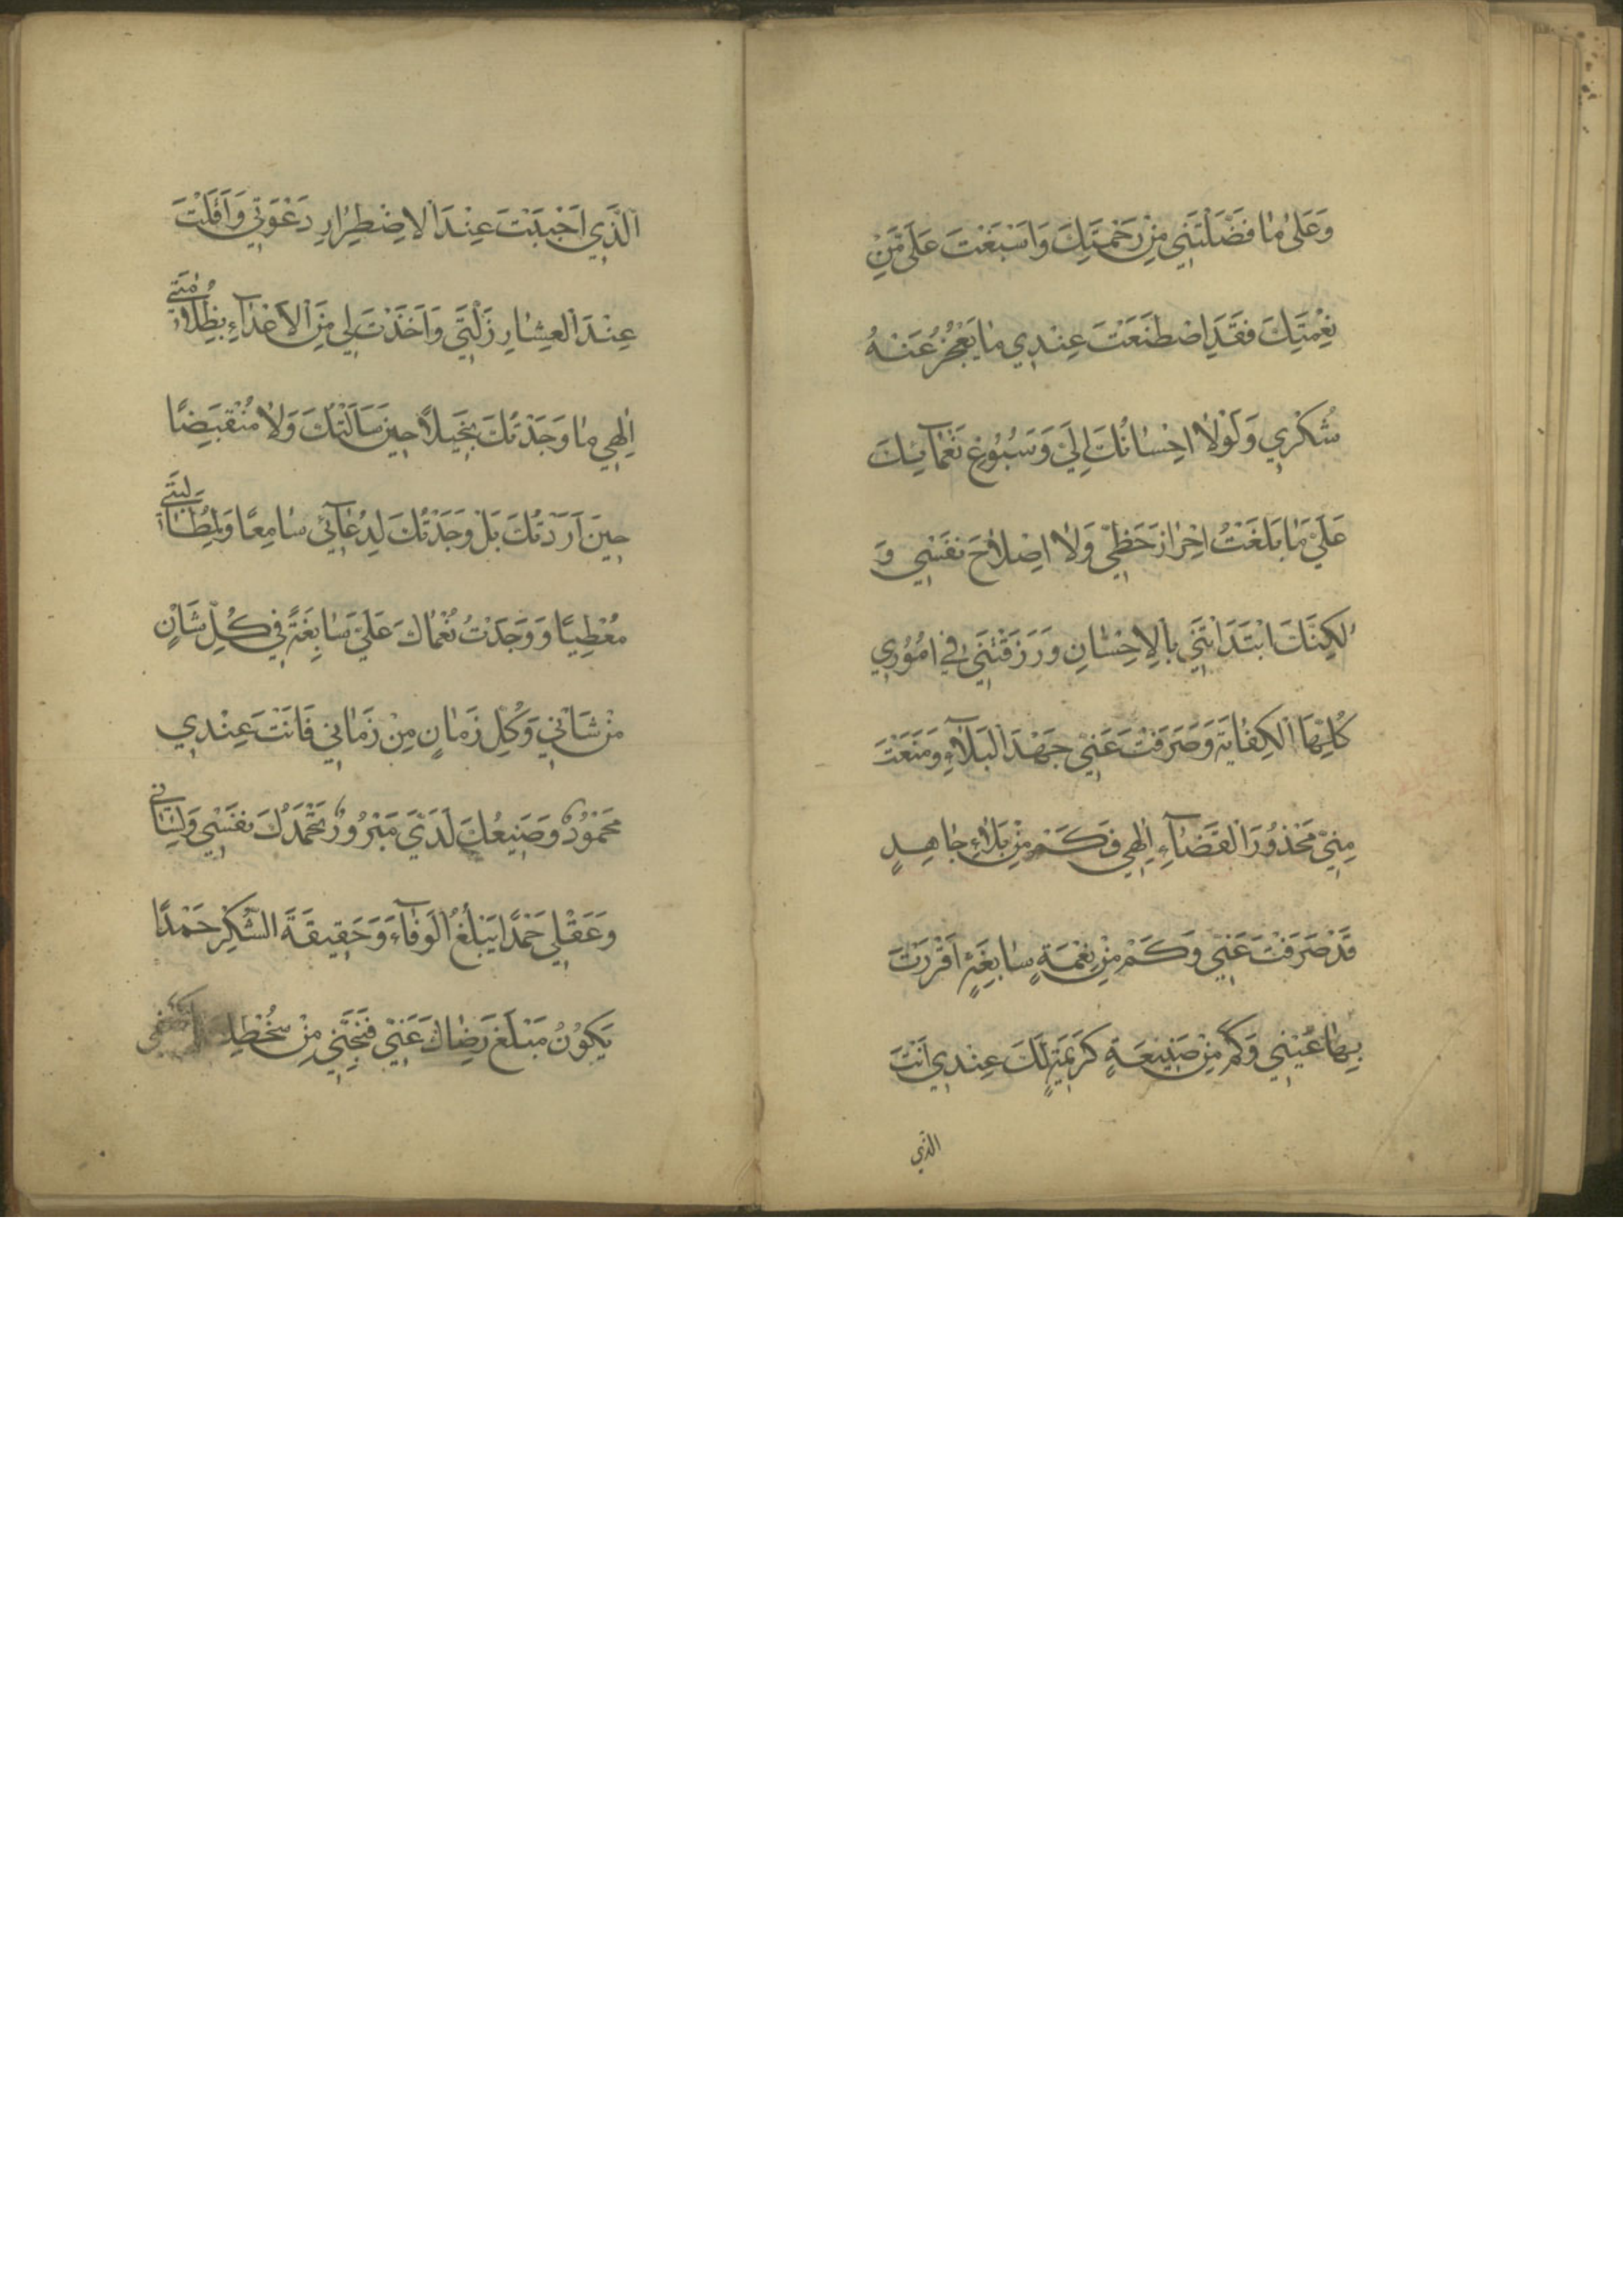 وَعَلىٰ مٰا فَضَّلْتَنِي مِنْ رَحْمَتِكَ وَاَسْبَغْتَ عَلَيَّ مِنْ
نِعْمَتِكَ فَقَدِ اصْطَنَعْتَ عِنْدِي مٰا يَعْجُزُ عَنْهُ
شُكْرِي وَلَوْلاٰ اِحْسٰانُكَ اِلَيَّ وَسُبُوْغُ نَعْمٰآئِكَ
عَلَيَّ مٰا بَلَغْتُ اِحْرٰازَ حَظِّي وَلاٰ اِصْلاٰحَ نَفْسِي وَ
لٰكِنَّكَ ابْتَدَاْتَنِي بِالْاِحْسٰانِ وَرَزَقْتَنِي فِي اُمُوْرِي
كُلِّهَا الْكِفٰايَةَ وَصَرَفْتَ عَنِّي جَهْدَ الْبَلاٰۤءِ وَمَنَعْتَ
مِنِّي مَحْذُوْرَ الْقَضٰآءِ اِلٰهِي فَكَمْ مِنْ بَلاٰءٍ جٰاهِدٍ
قَدْ صَرَفْتَ عَنِّي وَكَمْ مِنْ نِعْمَةٍ سٰابِغَةٍ اَقْرَرْتَ
بِهٰا عَيْنِي وَكَمْ مِنْ صَنِيْعَةٍ كَرِيْمَةٍ لَكَ عِنْدِي اَنْتَ
الذي
الَّذِي اَجْبَبْتَ عِنْدَ الْاِضْطِرٰارِ دَعْوَتِي وَاَقَلْتَ
عِنْدَ الْعِثٰارِ زَلَّتِي وَاَخَذْتَ لِي مِنَ الْاَعْدٰآءِ بِظُلاٰمَتِي
اِلٰهِي مٰا وَجَدْتُكَ بَخِيْلاً حِيْنَ سَاَلْتُكَ وَلاٰ مُنْقَبِضًا
حِيْنَ اَرَدْتُكَ بَلْ وَجَدْتُكَ لِدُعٰآئِي سٰامِعًا وَلِمَطٰالِبِي
مُعْطِيًا وَوَجَدْتُ نُعْمٰاكَ عَلَيَّ سٰابِغَةً فِي كُلِّ شَاْنٍ
مِنْ شَاْنِي وَكُلِّ زَمٰانٍ مِنْ زَمٰانِي فَاَنْتَ عِنْدِي
مَحْمُوْدٌ وَصَنِيْعُكَ لَدَيَّ مَبْرُوْرٌ تَحْمَدُكَ نَفْسِي وَلِسٰانِي
وَعَقْلِي حَمْدًا يَبْلُغُ الْوَفٰآءَ وَحَقِيْقَةَ الشُّكْرِ حَمْدًا
يَكُوْنُ مَبْلَغَ رِضٰاكَ عَنِّي فَنَجِّنِي مِنْ سُخْطِكَ